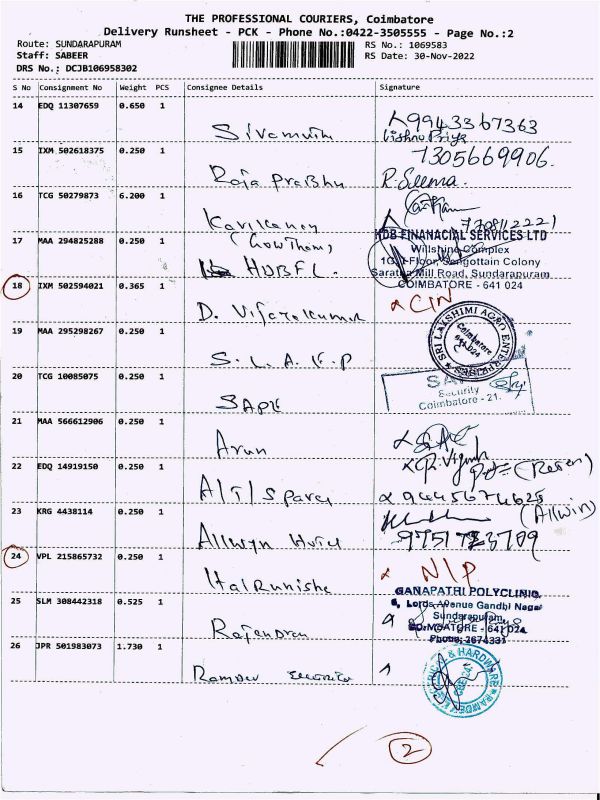 THE PROFESSIONAL COURIERS, Coimbatore
Delivery Runsheet - PCK - Phone No.:0422-3505555 - Page No.:2
Route: SUNDARAPURAM
RS No.: 1069583
Staff: SABEER
RS Date: 30-Nov-2022
DRS No.: DCJB106958302
S No Consignment No Weight PCS Consignee Details Signature
14 EDQ 11307659 0.650 1
9943367363
Vishnu Priya
15 IXM 502618375 0.250 1
7305669906.
Raja Prabhu R. Seema.
16 TCG 50279873 6.200 1
(Gowtham)
17 MAA 294825288 0.250 1
HDBFL.
HDB FINANACIAL SERVICES LTD
Willshine Complex
Mill Road, Sundarapuram
COIMBATORE - 641 024
18 IXM 502594021 0.365 1
CIN
D. Vijayakumar
19 MAA 295298267 0.250 1
SRI LAKSHIMI AGRO ENTERPRISES
Coimbatore
S.L.A.E.P
20 TCG 10085075 0.250 1
Security
Coimbatore - 21.
SAPE
21 MAA 566612906 0.250 1
Arun
22 EDQ 14919150 0.250 1
A/T/Spares
9445674625
23 KRG 4438114 0.250 1
(Allwin)
Allwyn Hotel
24 VPL 215865732 0.250 1
N/P
GANAPATHI POLYCLINIC,
Lords Avenue Gandhi Nagar
Sundarapuram,
COIMBATORE - 641 024
Phone: 2674331
25 SLM 308442318 0.525 1
Rajendran
26 JPR 501983073 1.730 1
2